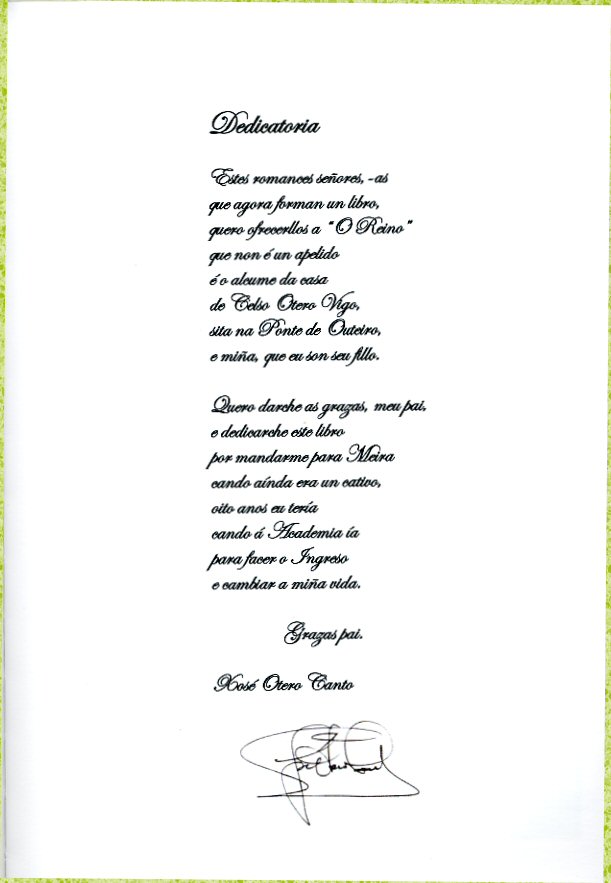 Dedicatoria
Estes romances señores, -as
que agora forman un libro,
quero ofrecerllos a “O Reino”
que non é un apelido
é o alcume da casa
de Celso Otero Vigo,
sita na Ponte de Outeiro,
e miña, que eu son seu fillo.
Quero darche as grazas, meu pai,
e dedicarche este libro
por mandarme para Meira
cando aínda era un cativo,
oito anos eu tería
cando á Academia ía
para facer o Ingreso
e cambiar a miña vida.
Grazas pai.
Xosé Otero Canto